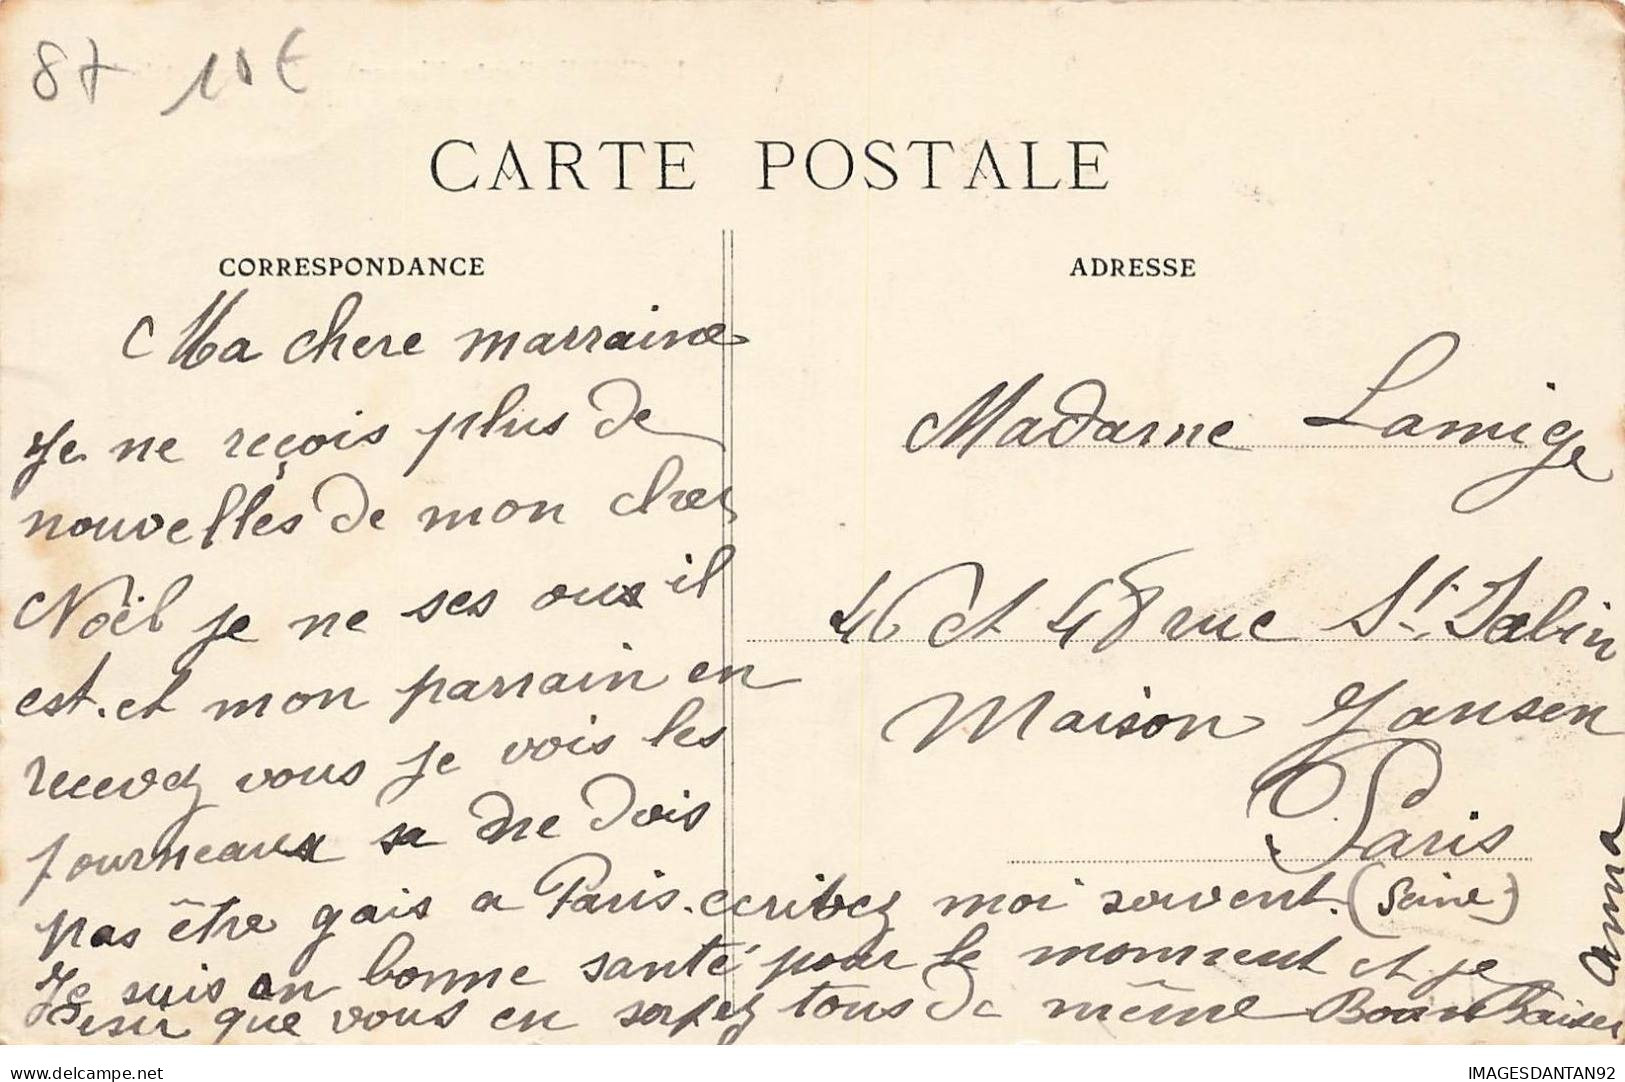 87 10€
CARTE POSTALE
CORRESPONDANCE
ADRESSE
Ma chere marraine
Je ne reçois plus de
nouvelles de mon cher
Noël je ne ses ous il
est. et mon parrain en
recevez vous je vois les
journeaux sa ne dois
pas être gais a Paris. ecribez moi souvent.
Je suis en bonne santé pour le moment et je
desir que vous en soyez tous de même Bons Baiser
Anna
Madame Lamige
46 et 48 rue St. Sabin
Maison Jansen
Paris
(Seine)
delcampe.net
IMAGESDANTAN92